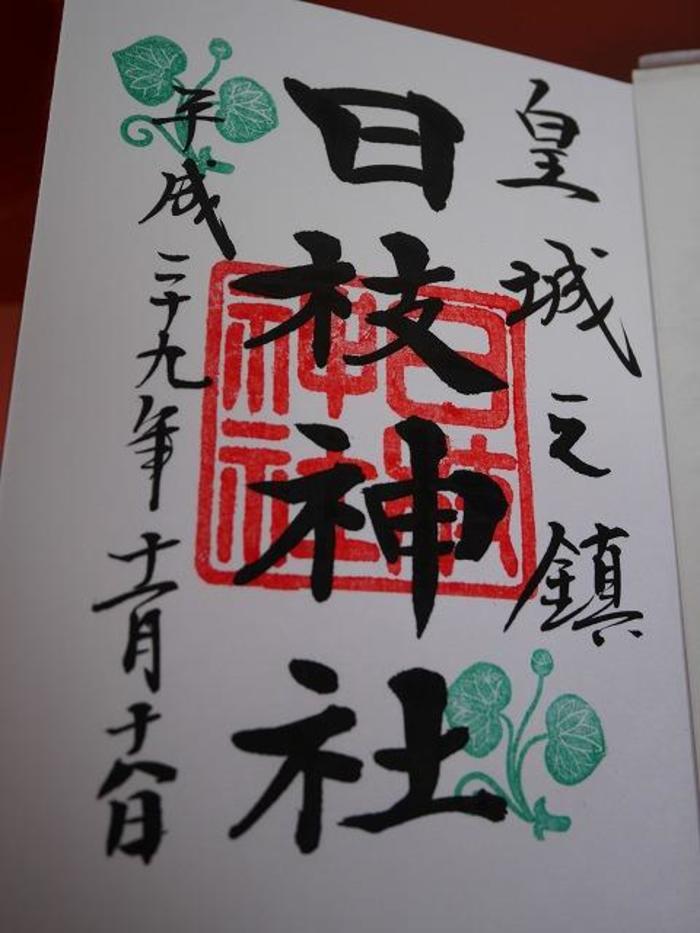 皇城之鎮
日枝神社
平成二十九年十一月十八日
日枝
神社